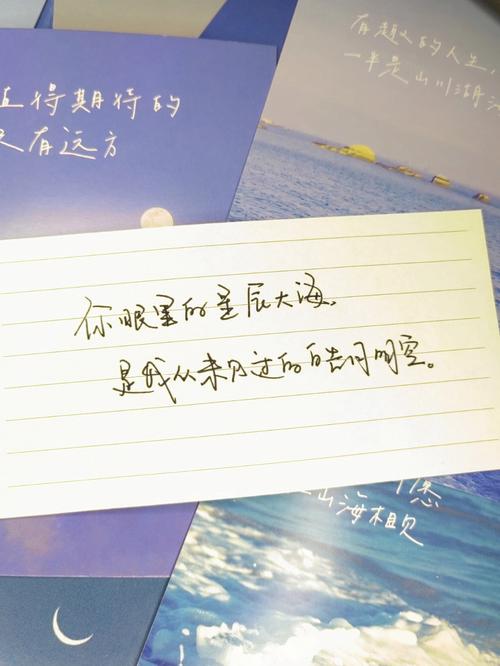 值得期待的
只有远方
有趣的人生，
一半是山川湖海
你眼里的星辰大海，
是我从未见过的皓月明空。
山海相见